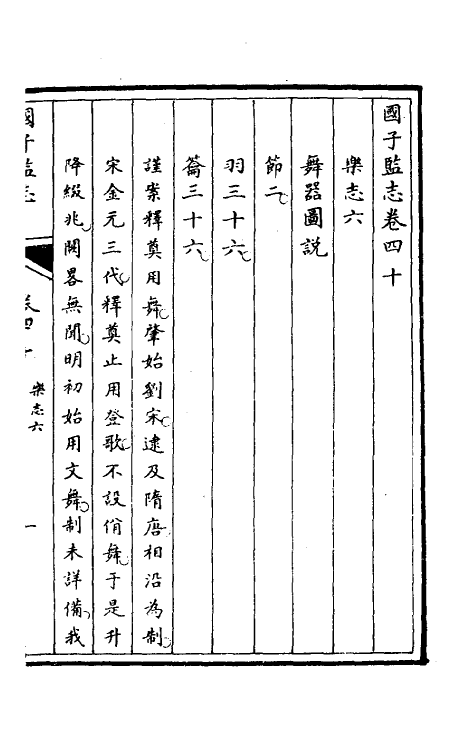 國子監志卷四十
樂志六
舞器圖説
節二
羽三十六
籥三十六
謹案釋奠用舞肇始劉宋逮及隋唐相沿為制
宋金元三代釋奠止用登歌不設佾舞于是升
降綴兆闕畧無聞明初始用文舞制未詳備我
國子監志
卷四十
樂志六
一